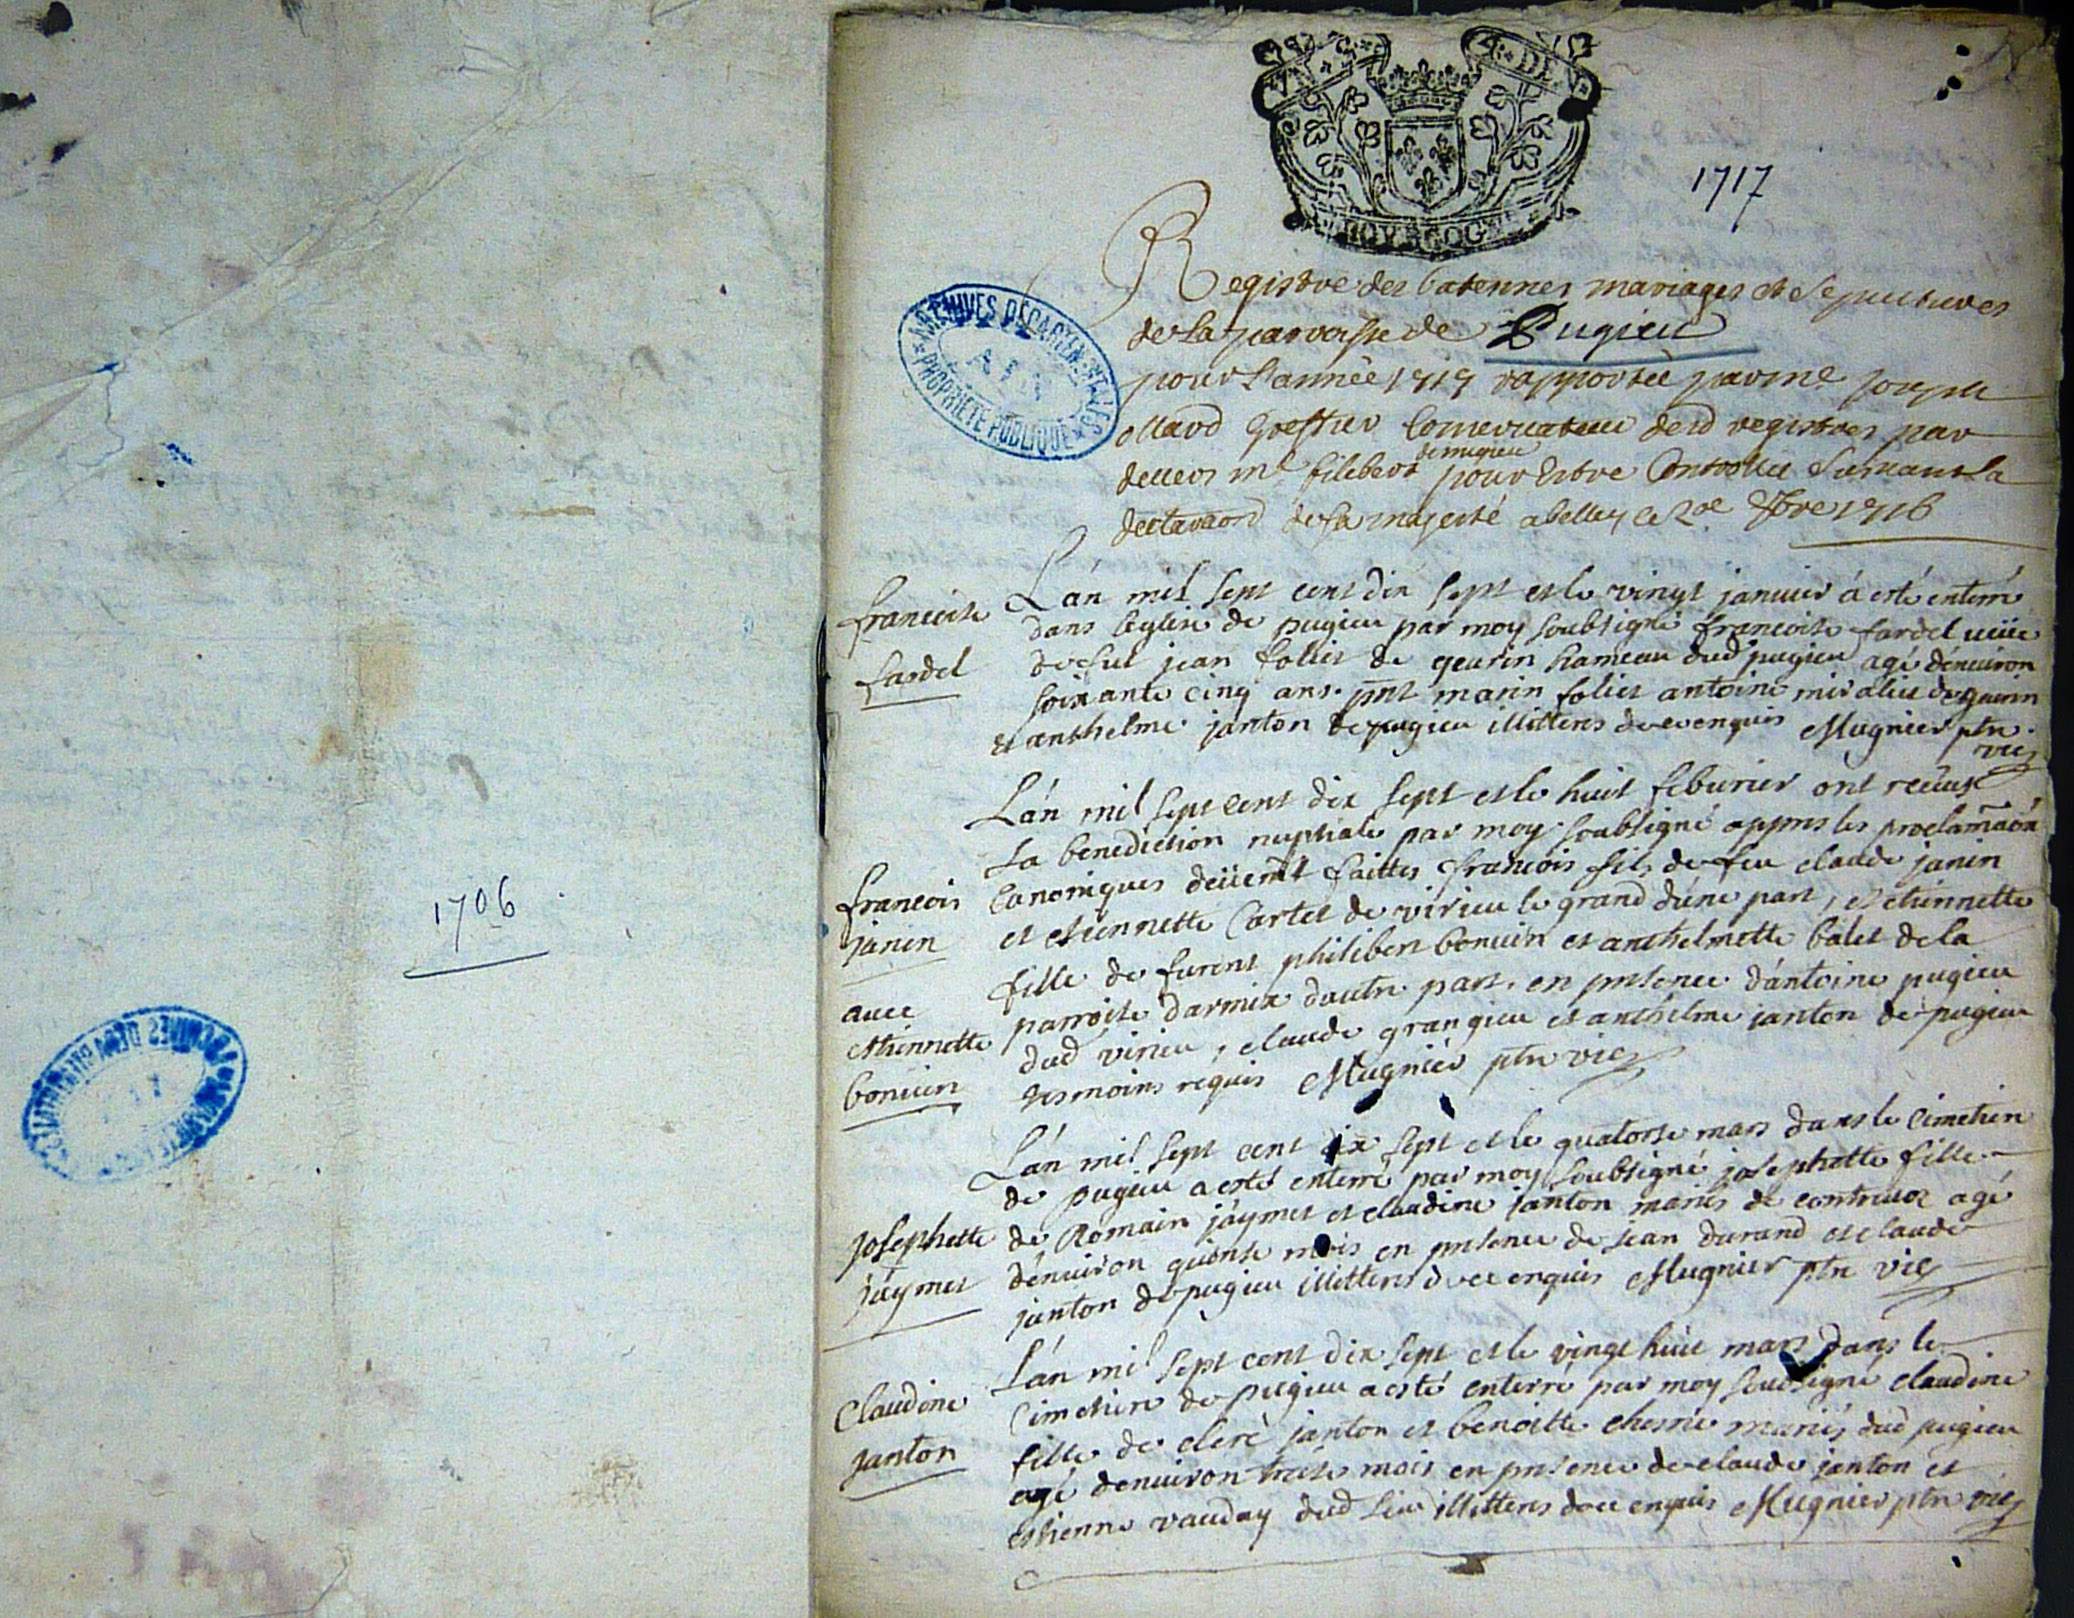 1706
ARCHIVES DEPARTEMENTALES
AIN
PROPRIETE PUBLIQUE
BOVRGOGNE
1717
Registre des batesmes mariages et sepultures
de la parroisse de Pugieu
pour l'année 1717 rapportée par me Joseph
ollard Greffier Conservateur desd registres par
devers me filibert demigieu pour estre Controllé suivant la
declaraon de sa majesté a belley ce 20e Xbre 1716
francoise
fardel
L'an mil sept cent dix sept et le vingt janvier á esté enterré
dans leglise de pugieu par moy soubsigné francoise fardel veüe
de fut jean foliet de geurin hameau dud pugieu agé dénuiron
soixante cinq ans. pnt marin foliet antoine miraliet de geurin
et anthelme janton de pugieu illitterés de ce enquis Mugnier ptre
vic
francois
janin
avec
estiennette
bonuin
L'an mil sept cent dix sept et le huit feburier ont receus
la benediction nuptiale par moy soubsigné appres les proclamaon
Canoniques deüemt faittes francois fils de feu claude janin
et estiennette Cartet de virieu le grand d'une part, et etiennette
fille de furent philibert bonuin et anthelmette balet de la
parroise darmix dautre part, en presence dántoine pugieu
dud virieu, claude grangieu et anthelme janton de pugieu
tesmoins requis Mugnier ptre vic
Josephette
jáymet
L'an mil sept cent dix sept et le quatorse mars dans le Cimetiere
de pugieu a esté enterré par moy soubsigné josephette fille
de Romain jáymet et claudine janton mariés de contreuoz agé
dénuiron quinse mois en presence de jean durand et claude
janton de pugieu illitterés de ce enquis Mugnier ptre vic
Claudine
janton
L'an mil sept cent dix sept et le vingt huit mars dans le
Cimetiere de pugieu a esté enterré par moy soubsigné claudine
fille de cleré janton et benoitte chesne mariés dud pugieu
agé denuiron treise mois en presence de claude janton et
estienne vauday dud lieu illitterés de ce enquis Mugnier ptre vic